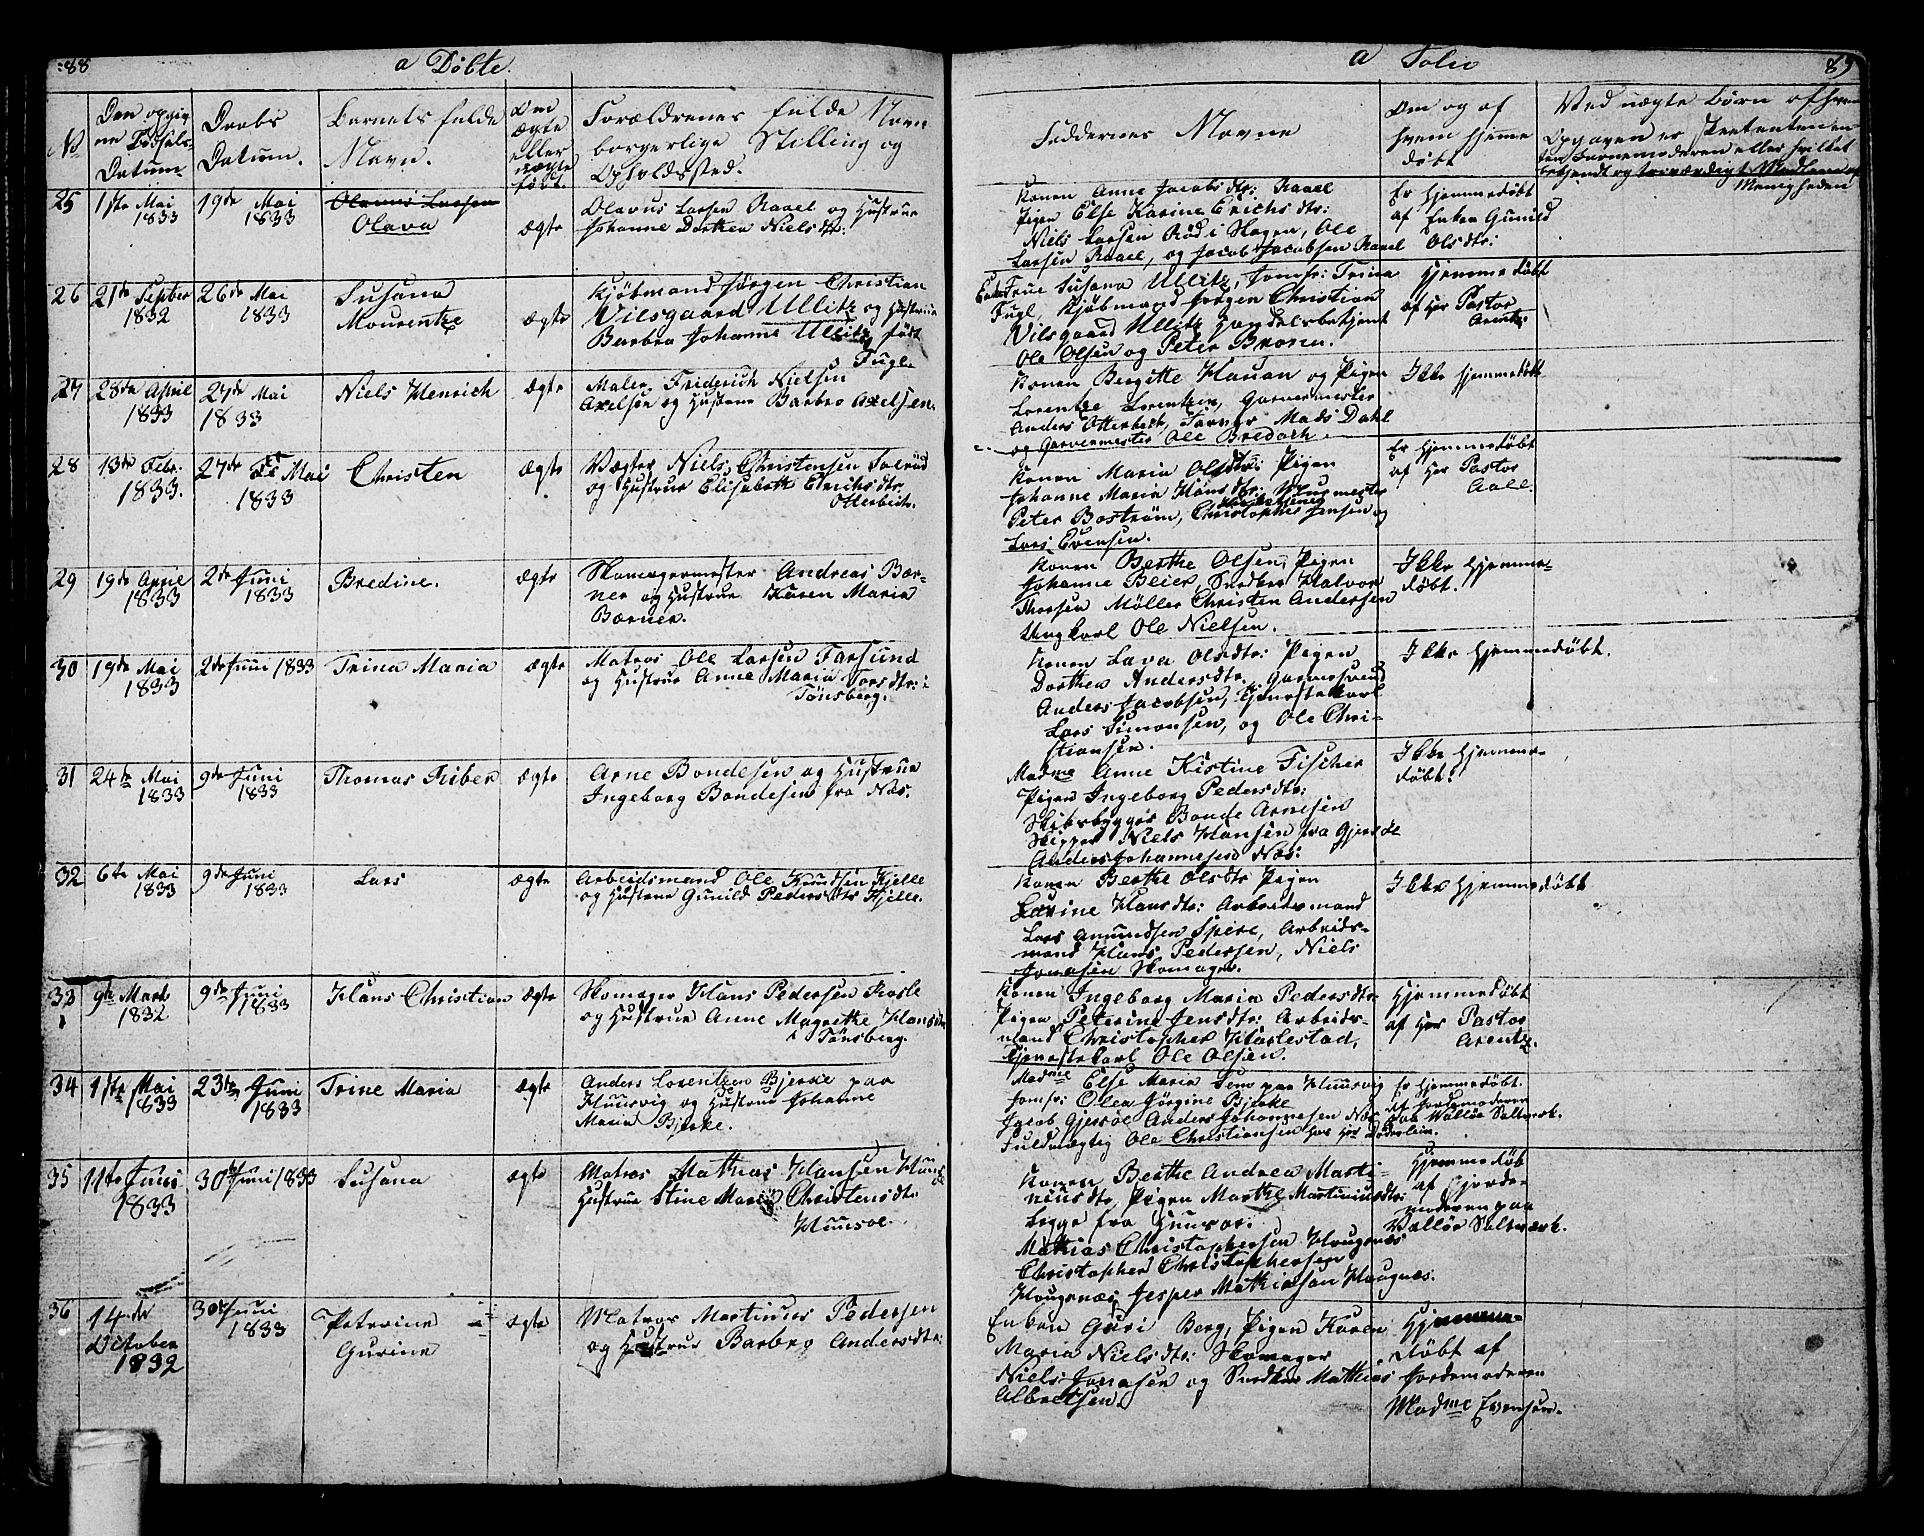 88
a Döbte.
No
Den opgiv
ne Födsels-
Datum.
Daabs
Datum.
Barnets fulde
Navn.
Om
ægte
eller
uægte
født.
Forældrenes fulde Navn
borgerlige Stilling og
Opholdssted.
25
1ste Mai
1833
19de Mai
1833
Olavus Larsen
Olava
ægte
Olavus Larsen Raael og Hustrue
Johanne Dorthea Nielsdtr:
26
21de Septber
1832
26de Mai
1833
Susana
Mourentze
ægte
Kjöbmand Jørgen Christian
Vilsgaard Ullitz og Hustrue
Barbra Johanne Ullitz født
Fugl.
27
28de April
1833
27de Mai
1833
Niels Henrich
ægte
Maler Friderich Nielsen
Axelsen og Hustrue Barbro Axelsen.
28
13de Febr.
1833.
27de Mai
1833
Christen
ægte
Vægter Niels Christensen Solerud
og Hustrue Elisabeth Erichsdtr.
Otterbech.
29
19de
1833
2de Juni
1833
Bredine.
ægte
Skomagermester Andreas Bær-
ner og Hustrue Karen Maria
Bærner.
30
19de Mai
1833
2de Juni 1833
Trina Maria
ægte
Matros Ole Larsen Farsund
og Hustrue Anne Maria Torsdtr: i
Tønsberg.
31
24de Mai
1833
9de Juni
1833
Thomas Riber
ægte
Arne Bondesen og Hustrue
Ingeborg Bondesen fra Næs.
32
6te Mai
1833
9de Juni
1833
Lars
ægte
Arbeidsmand Ole Knudsen Kjelle
og Hustrue Gunild Pedersdtr Kjelle.
33
9de Marts
1832
9de Juni
1833
Hans Christian
ægte
Skomager Hans Pedersen
og Hustrue Anne Magrethe Hansdtr
i Tønsberg.
34
1ste Mai
1833
23de Juni
1833
Trine Maria
ægte
Anders Lorentzen Bjerke paa
Huusvig og Hustrue Johanne
Maria Bjerke.
35
11te Juni
1833
30de Juni 1833
Susana
ægte
Matros Mathias Hansen
Hustrue Stine Maria Christensdtr:
Huusøe.
36
14de
October
1832
30de Juni
1833
Petrine
Gurine
ægte
Matros Martinus Pedersen
og Hustrue Barbro Andersdtr:
a Folio
89
Faddernes Navne
Om og af
hvem hjeme
døbt
Ved uægte Børn af hvem
Opgaven er skeet enten en-
ten Barnemoderen eller hvilket
bekjendt og troværdigt Medlem af
Menigheden
Konen Anne Jacobsdtr: Raael
Pigen Else Karine Erichsdtr:
Niels Larsen Röd i Slagen, Ole
Larsen Raael, og Jacob Jacobsen Raael
Er hjemmedøbt
af Enken Gunild
Olsdtr:
Enke Frue Susana Ullitz, Jomfr: Trina
Fugl, Kjöbmand Jørgen Christian
Vilsgaard Ullitz Handelsbetjent
Ole Olsen og Peter Bronn.
Hjemmedøbt
af Her Pastor
Arentz
Konen Bergitte Hauan og Pigen
Lorentze Lorentzen, Garvermester
Anders Otterbech, Farver Mads Dahl
og Garvermester Ole Bredoch.
Ikke Hjemmedøbt
Konen Maria Olsdtr: Pigen
Johanne Maria Hansdtr:
Peter Boström, Christopher Jensen og
Lars Evensen.
Er hjemmedøbt
af Her Pastor
Aall.
Konen Berthe Olsen, Pigen
Johanne Beier, Snedker Halvor
Thorsen Møller Christen Andersen
Ungkarl Ole Nielsen.
Ikke Hjemme-
døbt.
Konen Lava Olsdtr: Pigen
Dorthea Andersdtr. Garversvend
Anders Jacobsen, Tjenestekarl
Lars Simonsen, og Ole Chri-
stiansen.
Ikke Hjemmedøbt.
Madme Anne Kistine Fischer
Pigen Ingeborg Pedersdtr:
Skibsbygger Bonde Arnesen
Skipper Niels Hansen fra Gjersøe
Anders Johannesen Næs:
Ikke Hjemme-
døbt.
Konen Berthe Olsdtr Pigen
Lavine Hansdtr: Arbeidsmand
Lars Amundsen Spere, Arbeids-
mand Hans Pedersen, Niels
Jonasen Skomager.
Ikke Hjemmedøbt
Konen Ingeborg Maria Pedersdtr.
Pigen Peterine Jensdtr: Arbeids-
mand Christopher Harlestad,
Tjenestekarl Ole Olsen.
Hjemmedøbt
af Her Pastor
Arentz.
Madme Else Maria Sem paa Huusvig
Jomfr: Olea Jörgine Bjerke
Jacob Gjersøe Anders Johannesen Næs
Fuldmægtig Ole Christiansen hos Hr: Døderlein.
Er Hjemmedøbt.
af Jordemoderen
paa Walløe Saltverk.
Konen Berthe Andrea Marti-
niusdtr, Pigen Marthe Martiniusdtr:
begge fra Huusøe:
Mathias Christophersen Hougnæs
Christopher Christophersen
Hougnæs, Jesper Mathiasen Hougnæs.
Hjemmedøbt
af Gjorde-
moderen paa
Valløe Saltværk.
Enken Guri Berg, Pigen Karen
Maria Nielsdtr: Skomager
Niels Jonasen og Snedker Mathias
Albretsen.
Hjemme-
døbt af
Jordemoderen
Madme Evensen.